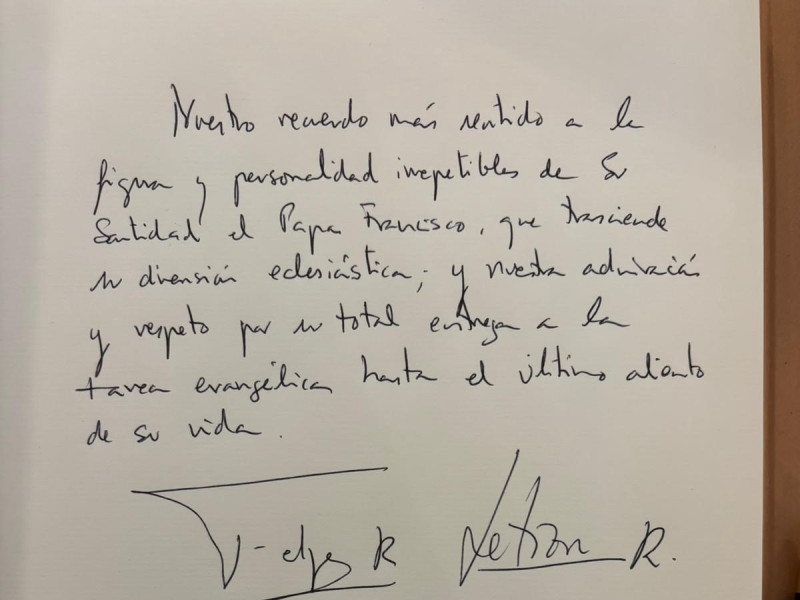 Nuestro recuerdo más sentido a la
figura y personalidad irrepetibles de Su
Santidad el Papa Francisco, que trasciende
su dimensión eclesiástica; y nuestra admiración
y respeto por su total entrega a la
tarea evangélica hasta el último aliento
de su vida.
Felipe R Letizia R.